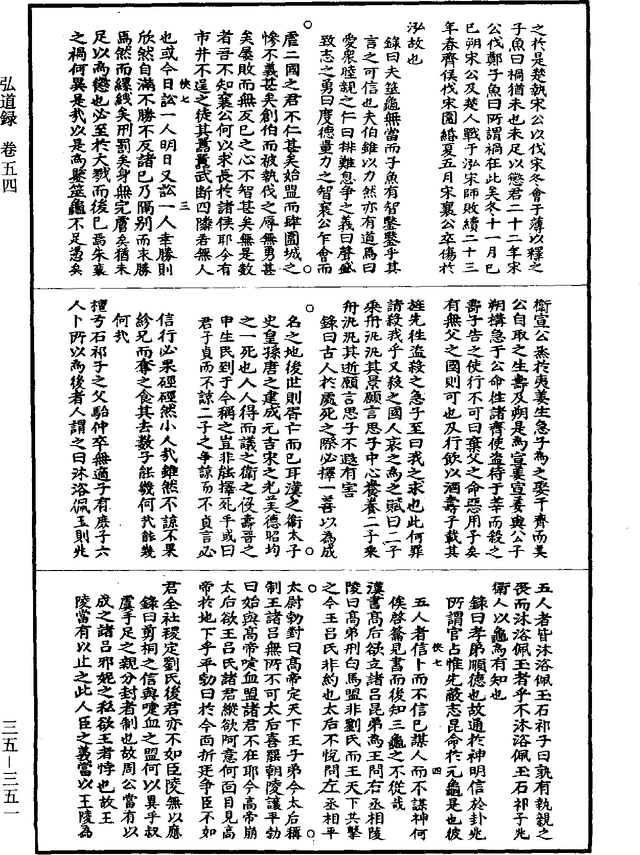 弘道録 卷五四
三五—三五一
之於是楚執宋公以伐宋冬會于薄以釋之
子魚曰禍猶未也未足以懲君二十二年宋
公伐鄭子魚曰所謂禍在此矣冬十一月己
巳朔宋公及楚人戰于泓宋師敗績二十三
年春齊侯伐宋圍緡夏五月宋襄公卒傷於
泓故也
錄曰夫筮龜無當而子魚有智鑿鑿乎其
言之可信也夫伯雖以力然亦有道焉曰
愛衆睦親之仁曰排難息爭之義曰聲盛
致志之勇曰度德量力之智襄公乍會而
虐二國之君不仁甚矣始盟而肆圍城之
慘不義甚矣創伯而被執伐之辱無勇甚
矣屢敗而無反己之心不智甚矣無是數
者吾不知襄公何以求長於諸侯耶今有
市井不逞之徒其蠆蠆武斷四隣若無人
侠七
三
也或今日訟一人明日又訟一人幸勝則
欣然自滿不勝不反諸己乃隔別而求勝
焉然而縲絏矣刑罰矣身無完膚矣猶未
足以為戁也必至於大戮而後已焉宋襄
之禍何異是哉以是為鑒筮龜不足憑矣
衛宣公烝於夷姜生急子為之娶于齊而美
公自取之生壽及朔是為宣姜宣姜與公子
朔構急子公命往諸齊使盗待于莘而殺之
壽子告之使行不可曰棄父之命惡用子矣
有無父之國則可也及行飲以酒壽子載其
旌先往盗殺之急子至曰我之求也此何罪
請殺我乎又殺之國人哀之為之賦曰二子
乘舟汎汎其景願言思子中心養養二子乘
舟汎汎其逝願言思子不遐有害
錄曰古人於處死之際必擇一善以為成
名之地後世則胥亡而已耳漢之衛太子
史皇孫唐之建成元吉宋之光美德昭均
之一死也人人得而議之衛之伋壽晉之
申生民到于今稱之豈非能擇死乎或曰
君子貞而不諒二子之爭諒而不貞言必
信行必果硜硜然小人哉雖然不諒不果
紾兄而奪之食其去數子能幾何哉能幾
何哉
檀弓石祁子之父駘仲卒無適子有庶子六
人卜所以為後者人謂之曰沐浴佩玉則兆
五人者皆沐浴佩玉石祁子曰孰有執親之
喪而沐浴佩玉者乎不沐浴佩玉石祁子兆
衛人以龜為有知也
錄曰孝弟順德也故通於神明信於卦兆
所謂官占惟先蔽志昆命於元龜是也彼
侠七
四
五人者信卜而不信己謀人而不謀神何
俟啓籥見書而後知三龜之不從哉
漢書高后欲立諸呂昆弟為王問右丞相陵
陵曰高弟刑白馬盟非劉氏而王天下共擊
之今王呂氏非約也太后不悅問左丞相平
太尉勃對曰高帝定天下王子弟今太后稱
制王諸呂無所不可太后喜罷朝陵讓平勃
曰始與高帝喢血盟諸君不在耶今高帝崩
太后欲王呂氏諸君縱欲阿意何面目見高
帝於地下乎平勃曰於今面折廷爭臣不如
君全社稷定劉氏後君亦不如臣陵無以應
錄曰剪桐之信與喢血之盟何以異乎叔
虞手足之親分封者制也故周公當有以
成之諸呂邪嬖之私欲王者悖也故王
陵當有以止之此人臣之義當以王陵為